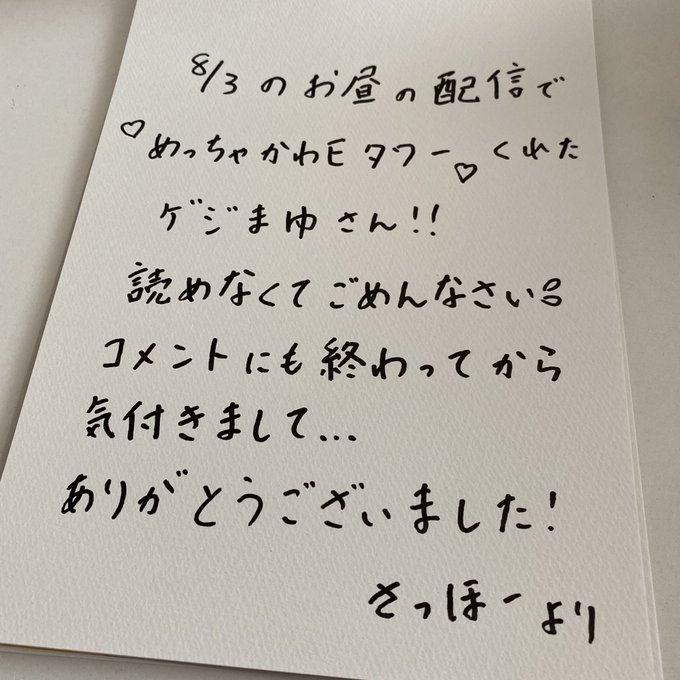 8/3のお昼の配信で
♡めっちゃかわEタワー♡くれた
ゲジまゆさん!!
読めなくてごめんなさい。。
コメントにも終わってから
気付きまして...
ありがとうございました!
さっほーより